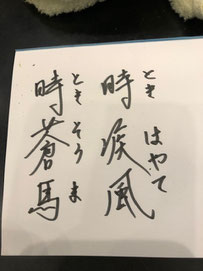 時疾風
とき はやて
時蒼馬
とき そうま